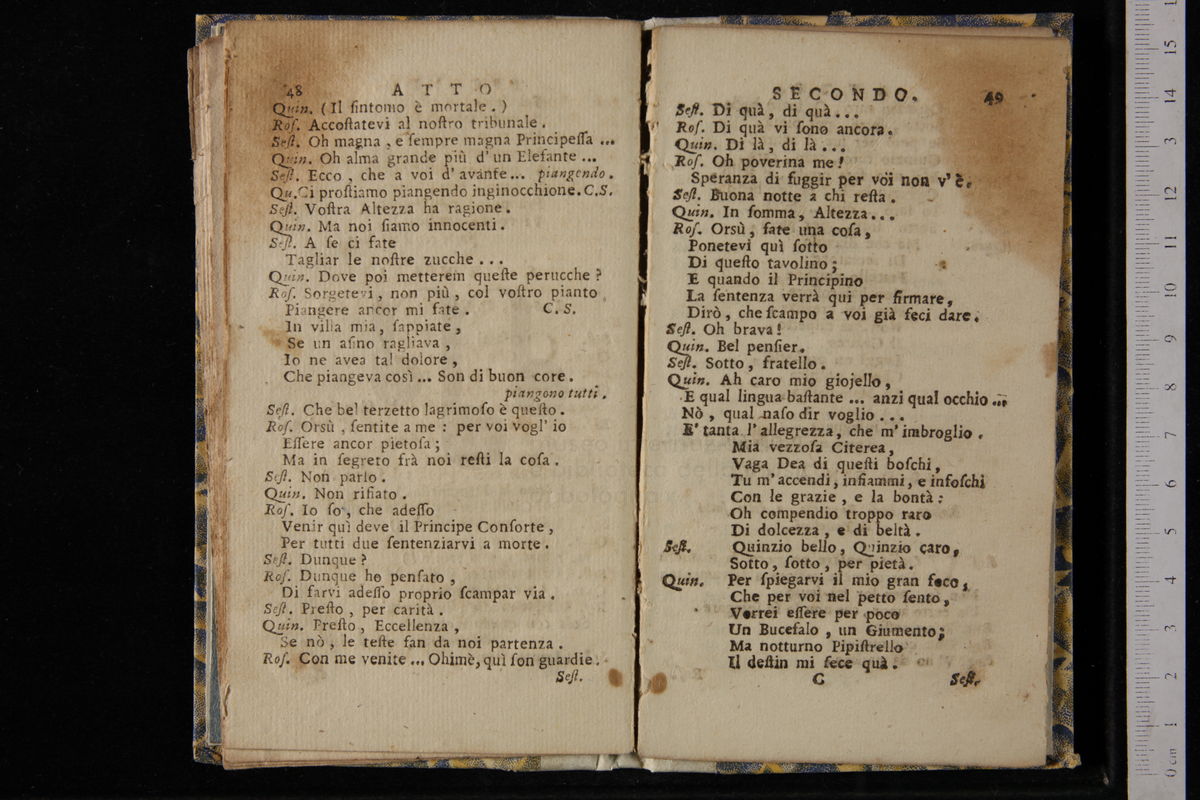 48 ATTO
Quin. (Il ſintomo è mortale.)
Roſ. Accoſtatevi al noſtro tribunale.
Seſt. Oh magna, e ſempre magna Principeſſa ...
Quin. Oh alma grande più d' un Elefante ...
Seſt. Ecco, che a voi d' avante... piangendo.
Qu. Ci proſtiamo piangendo inginocchione. C.S.
Seſt. Voſtra Altezza ha ragione.
Quin. Ma noi ſiamo innocenti.
Seſt. A ſe ci fate
Tagliar le noſtre zucche ...
Quin. Dove poi metterem queſte perucche?
Roſ. Sorgetevi, non più, col voſtro pianto
Piangere ancor mi fate. C. S.
In villa mia, ſappiate,
Se un aſino ragliava,
Io ne avea tal dolore,
Che piangeva così ... Son di buon core.
piangono tutti.
Seſt. Che bel terzetto lagrimoſo è queſto.
Roſ. Orsù, ſentite a me: per voi vogl' io
Eſſere ancor pietoſa;
Ma in ſegreto frà noi reſti la coſa.
Seſt. Non parlo.
Quin. Non rifiato.
Roſ. Io ſo, che adeſſo
Venir quì deve il Principe Conſorte,
Per tutti due ſentenziarvi a morte.
Seſt. Dunque?
Roſ. Dunque ho penſato,
Di farvi adeſſo proprio ſcampar via.
Seſt. Preſto, per carità.
Quin. Preſto, Eccellenza,
Se nò, le teſte fan da noi partenza.
Roſ. Con me venite ... Ohimè, quì ſon guardie.
Seſt.
SECONDO. 49
Seſt. Di quà, di quà...
Roſ. Di quà vi ſono ancora.
Quin. Di là, di là...
Roſ. Oh poverina me!
Speranza di fuggir per voi non v' è.
Seſt. Buona notte a chi reſta.
Quin. In ſomma, Altezza...
Roſ. Orsù, fate una coſa,
Ponetevi quì ſotto
Di queſto tavolino;
E quando il Principino
La ſentenza verrà qui per firmare,
Dirò, che ſcampo a voi già feci dare.
Seſt. Oh brava!
Quin. Bel penſier.
Seſt. Sotto, fratello.
Quin. Ah caro mio giojello,
E qual lingua baſtante ... anzi qual occhio ...
Nò, qual naſo dir voglio...
E' tanta l' allegrezza, che m' imbroglio.
Mia vezzoſa Citerea,
Vaga Dea di queſti boſchi,
Tu m' accendi, infiammi, e infoſchi
Con le grazie, e la bontà:
Oh compendio troppo raro
Di dolcezza, e di beltà.
Seſt. Quinzio bello, Quinzio caro,
Sotto, ſotto, per pietà.
Quin. Per ſpiegarvi il mio gran foco,
Che per voi nel petto ſento,
Vorrei eſſere per poco
Un Bucefalo, un Giumento;
Ma notturno Pipiſtrello
Il deſtin mi fece quà.
C Seſt.